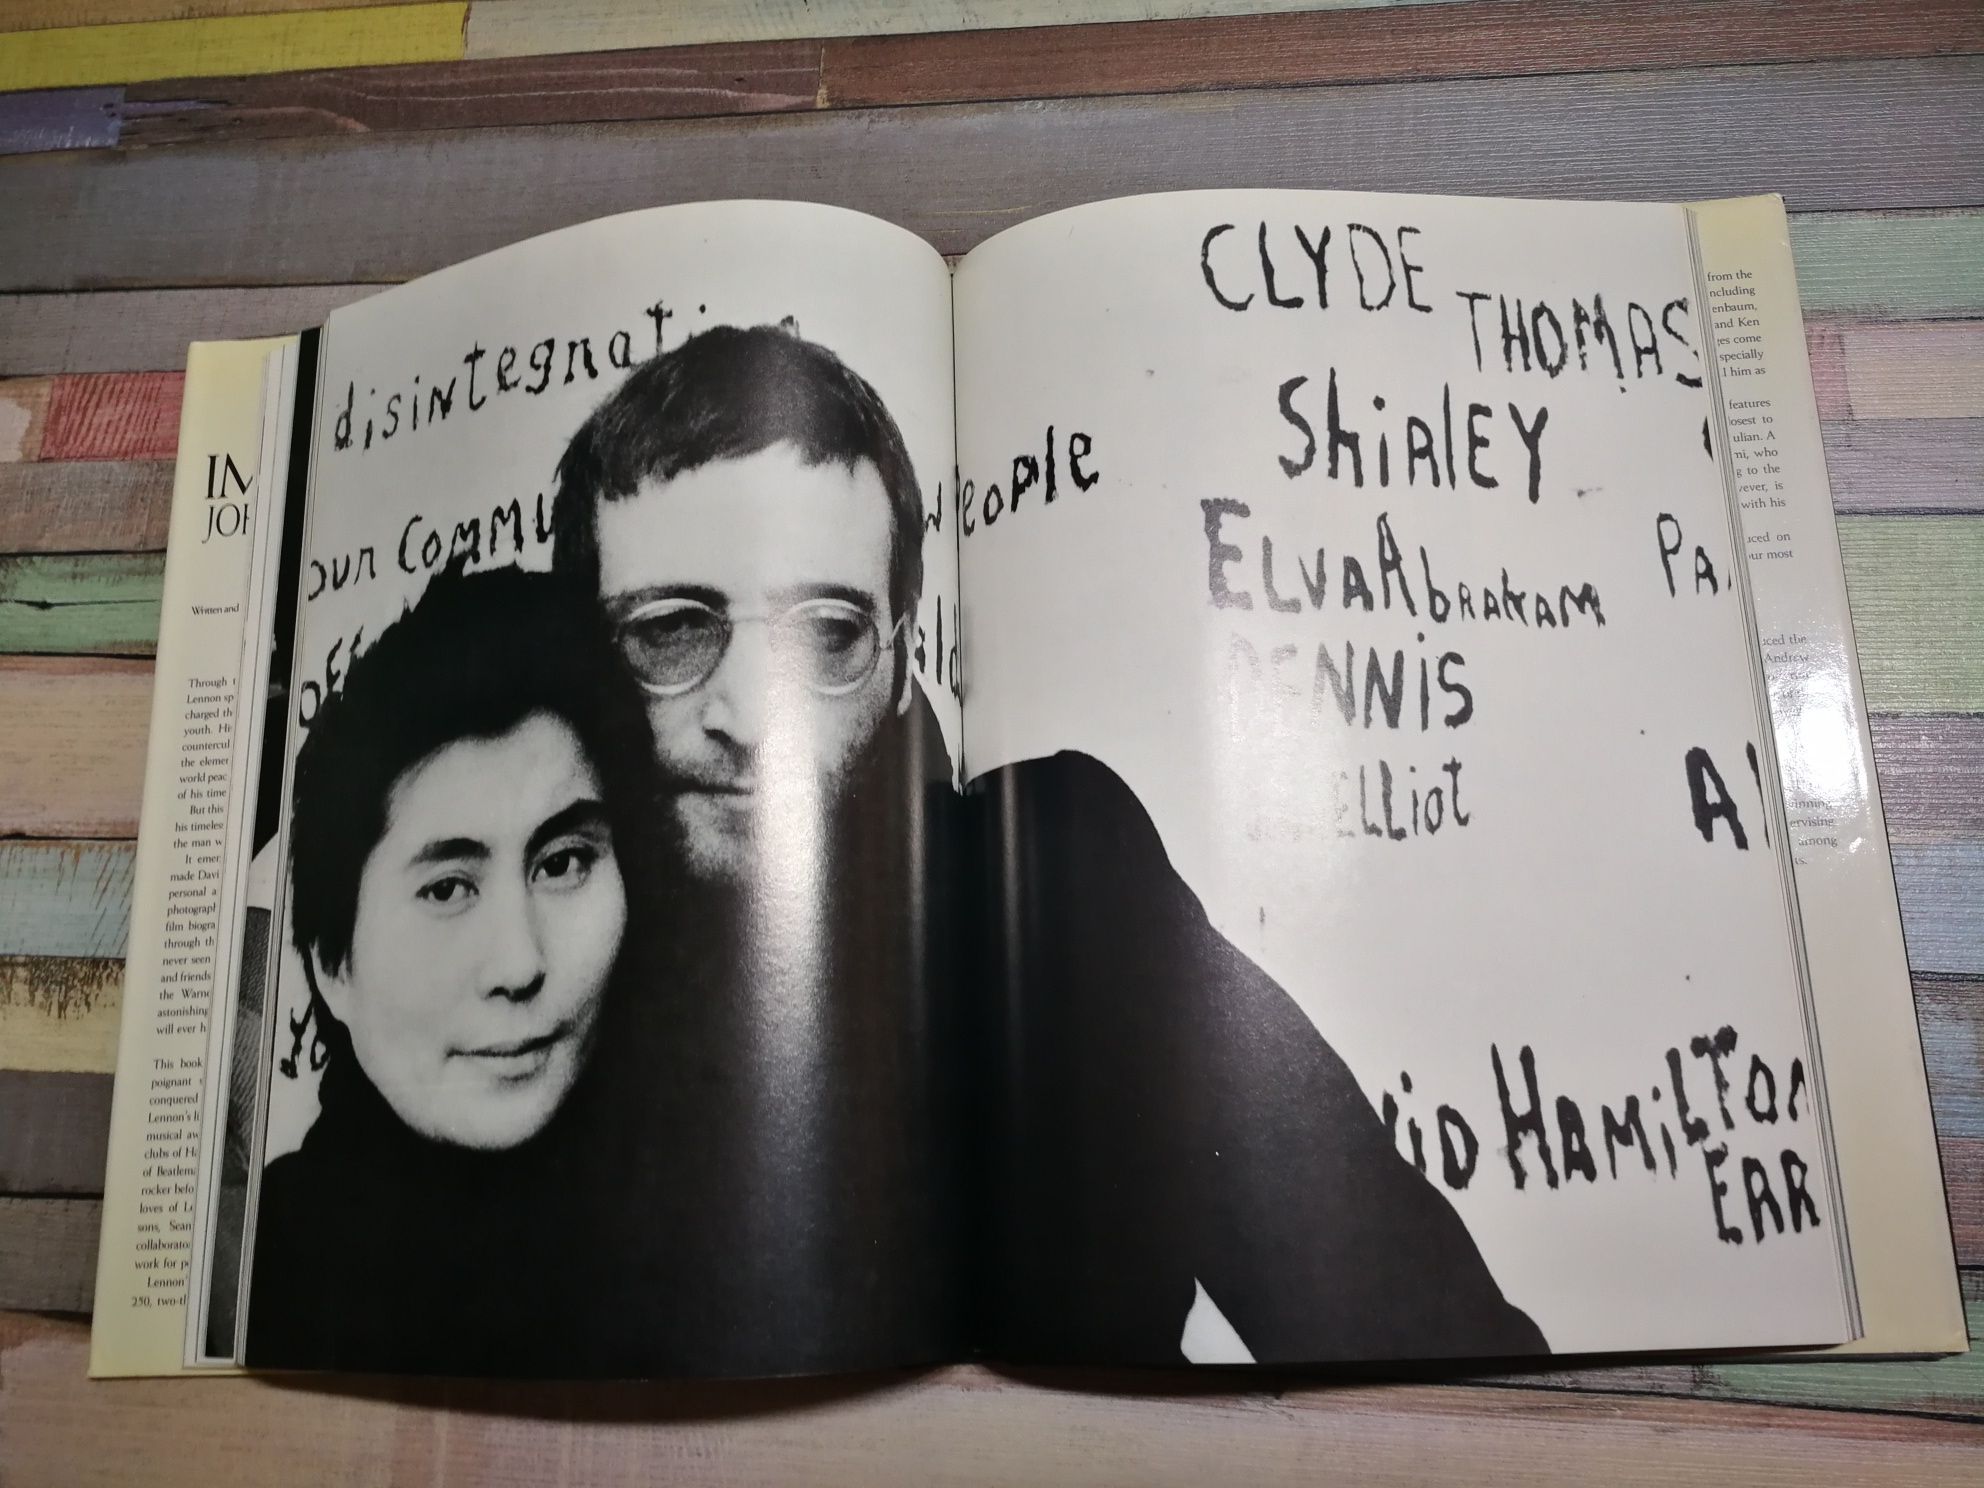 IM
JOH
Written and
Through t
Lennon sp
charged th
youth. Hi
countercul
the elemen
world peac
of his time
But this
his timeles
the man w
It emer
made Davi
personal a
photograph
film biogra
through th
never seen
and friends
the Warne
astonishing
will ever h
This book
poignant
conquered
Lennon's li
musical aw
clubs of Ha
of Beatlema
rocker befo
loves of Le
sons, Sean
collaborato
work for pe
Lennon'
250, two-th
disintegrati
our Commu
People
ild
Yo
CLYDE
THOMAS
ShiRLEY
ELVA AbRAHAM
PA
DENNIS
ELLiot
A
ViD HAMiLTON
ERR
from the
ncluding
enbaum,
and Ken
ges come
specially
l him as
features
losest to
ulian. A
ni, who
g to the
ever, is
with his
uced on
ur most
uced the
Andrew
inning
ervising
among
ts.